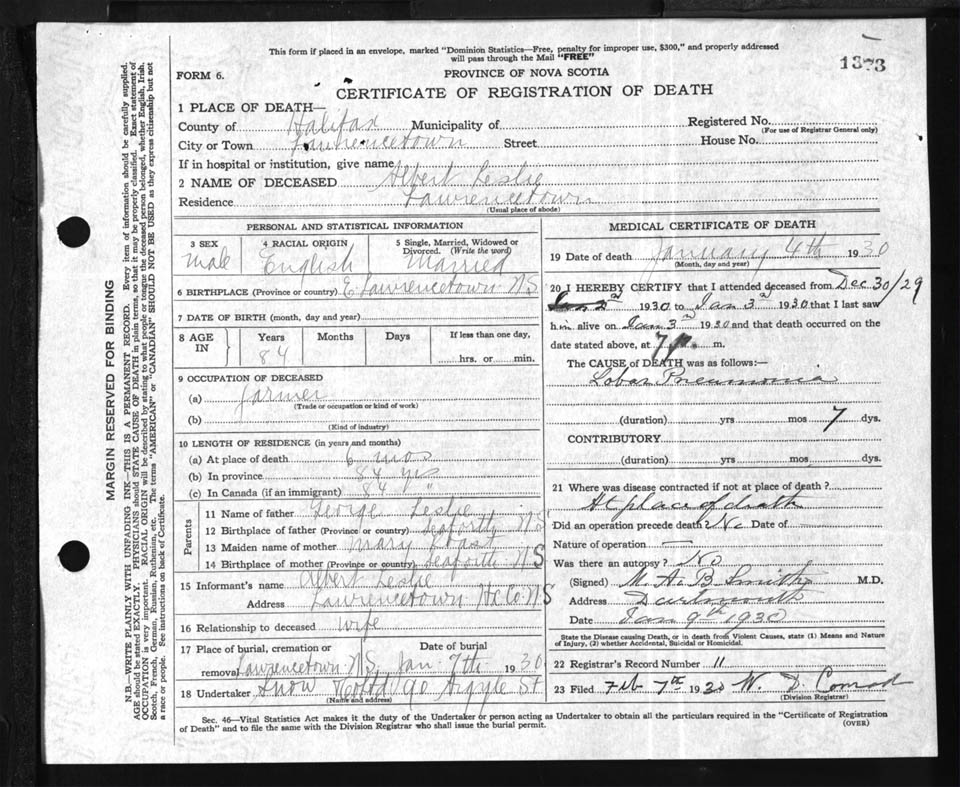 This form if placed in an envelope, marked "Dominion Statistics—Free, penalty for improper use, $300," and properly addressed
will pass through the Mail "FREE"
1373
FORM 6.
PROVINCE OF NOVA SCOTIA
CERTIFICATE OF REGISTRATION OF DEATH
1 PLACE OF DEATH—
County of Halifax Municipality of Registered No.
(For use of Registrar General only)
City or Town Lawrencetown Street House No.
If in hospital or institution, give name
2 NAME OF DECEASED Albert Leslie
Residence Lawrencetown
(Usual place of abode)
PERSONAL AND STATISTICAL INFORMATION
3 SEX 4 RACIAL ORIGIN 5 Single, Married, Widowed or
Divorced. (Write the word)
Male English Married
6 BIRTHPLACE (Province or country) E. Lawrencetown NS
7 DATE OF BIRTH (month, day and year)
8 AGE IN Years Months Days If less than one day,
84 hrs. or min.
9 OCCUPATION OF DECEASED
(a) farmer
(Trade or occupation or kind of work)
(b)
(Kind of industry)
10 LENGTH OF RESIDENCE (in years and months)
(a) At place of death 6 mos
(b) In province 84 yrs
(c) In Canada (if an immigrant) 84 "
Parents
11 Name of father George Leslie
12 Birthplace of father (Province or country) Seaforth NS
13 Maiden name of mother Mary
14 Birthplace of mother (Province or country) Seaforth NS
15 Informant's name Albert Leslie
Address Lawrencetown Hx Co NS
16 Relationship to deceased wife
17 Place of burial, cremation or Date of burial
removal Lawrencetown NS Jan 7th 1930
18 Undertaker Snow 90 Argyle St
(Name and address)
MEDICAL CERTIFICATE OF DEATH
19 Date of death January 4th 1930
(Month, day and year)
20 I HEREBY CERTIFY that I attended deceased from Dec 30/29
Jan 2nd 1930 to Jan 3rd 1930 that I last saw
him alive on Jan 3rd 1930 and that death occurred on
date stated above, at 7 p. m.
The CAUSE of DEATH was as follows:—
Lobar Pneumonia
(duration) yrs mos 7 dys.
CONTRIBUTORY
(duration) yrs mos dys.
21 Where was disease contracted if not at place of death?
At place of death
Did an operation precede death? No Date of
Nature of operation —
Was there an autopsy? No
(Signed) M. A. B. Smith M.D.
Address Dartmouth
Date Jan 9th 1930
State the Disease causing Death, or in death from Violent Causes, state (1) Means and Nature
of Injury, (2) whether Accidental, Suicidal or Homicidal.
22 Registrar's Record Number 11
23 Filed Feb 7th 1930 W. D. Conrod
(Division Registrar)
Sec. 46—Vital Statistics Act makes it the duty of the Undertaker or person acting as Undertaker to obtain all the particulars required in the "Certificate of Registration
of Death" and to file the same with the Division Registrar who shall issue the burial permit.
(OVER)
MARGIN RESERVED FOR BINDING
N.B.—WRITE PLAINLY WITH UNFADING INK—THIS IS A PERMANENT RECORD. Every item of information should be carefully supplied.
AGE should be stated EXACTLY. PHYSICIANS should STATE CAUSE OF DEATH in plain terms, so that it may be properly classified. Exact statement of
OCCUPATION is very important. RACIAL ORIGIN will be described by stating to what people or tongue the deceased person belonged, whether English, Irish,
Scotch, French, German, Russian, Ruthenian, etc. The terms "AMERICAN" or "CANADIAN" SHOULD NOT BE USED as they express citizenship but not
a race or people. See instructions on back of Certificate.